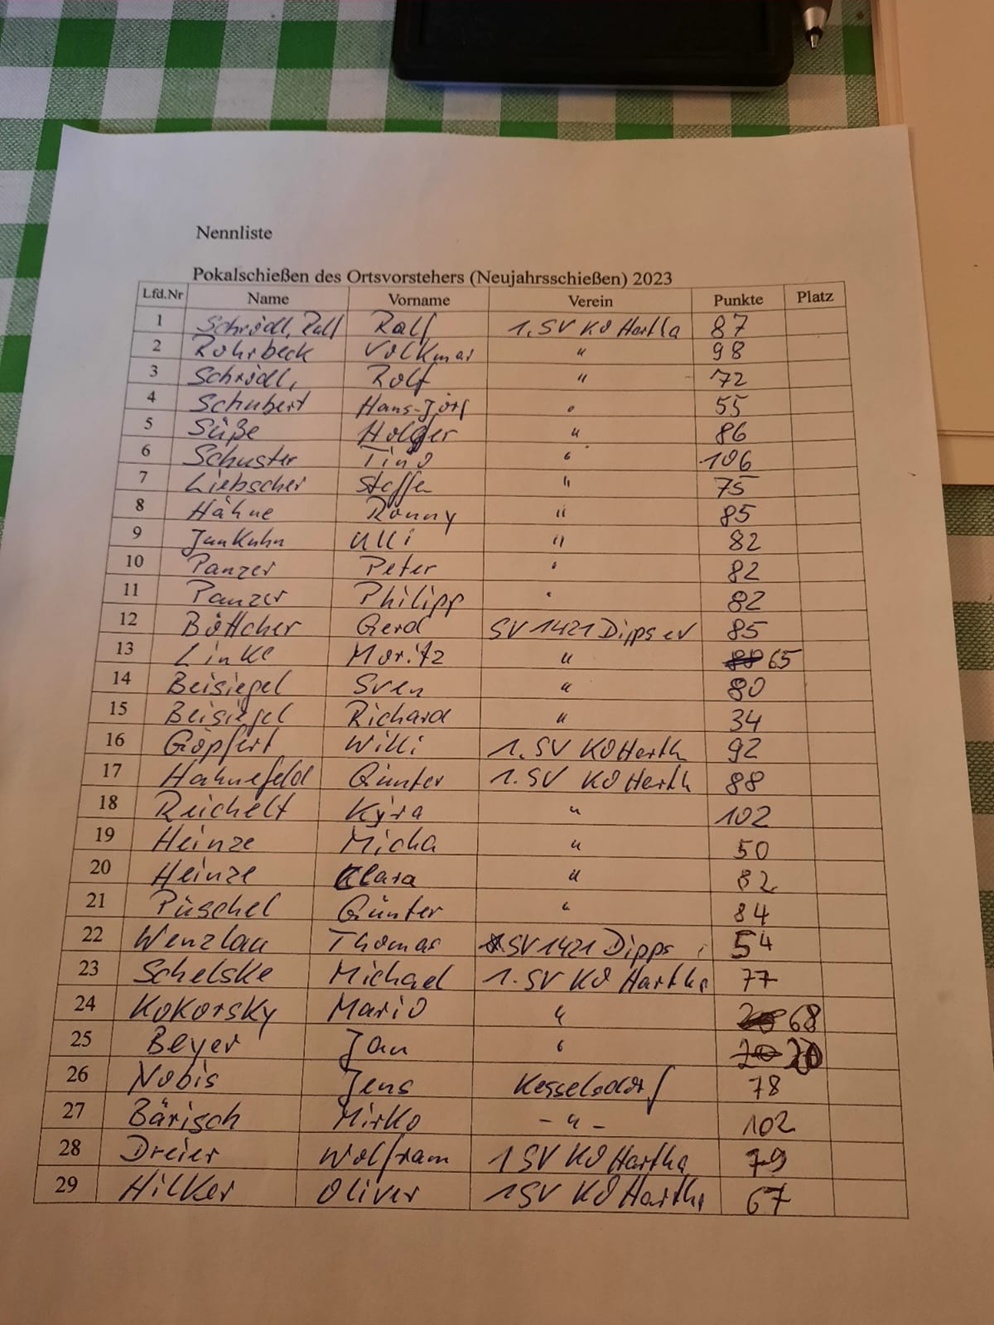 Nennliste
Pokalschießen des Ortsvorstehers (Neujahrsschießen) 2023
Lfd.Nr Name Vorname Verein Punkte Platz
1 Schrödl, Ralf Ralf 1. SV KO Hartha 87
2 Rohrbeck Volkmar " 98
3 Schrödl, Rolf " 72
4 Schubert Hans-Jörg " 55
5 Süße Holger " 86
6 Schuster Tino " 106
7 Liebscher Steffen " 75
8 Hähne Ronny " 85
9 Junkuhn Ulli " 82
10 Panzer Peter " 82
11 Panzer Philipp " 82
12 Böttcher Gerd SV 1421 Dipps eV 85
13 Linke Moritz " 65
14 Beisiegel Sven " 80
15 Beisiegel Richard " 34
16 Göpfert Willi 1. SV KO Harth 92
17 Hahnefeld Günter 1. SV KO Harth 88
18 Reichelt Kyra " 102
19 Heinze Micha " 50
20 Heinze Clara " 82
21 Püschel Günter " 84
22 Wenzlau Thomas SV 1421 Dipps 54
23 Schelske Michael 1. SV KO Hartha 77
24 Kokorsky Mario " 68
25 Beyer Jan " 20
26 Nobis Jens Kesselsdorf 78
27 Bärisch Mirko - " - 102
28 Dreier Wolfram 1 SV KO Hartha 79
29 Hilker Oliver 1 SV KO Hartha 67